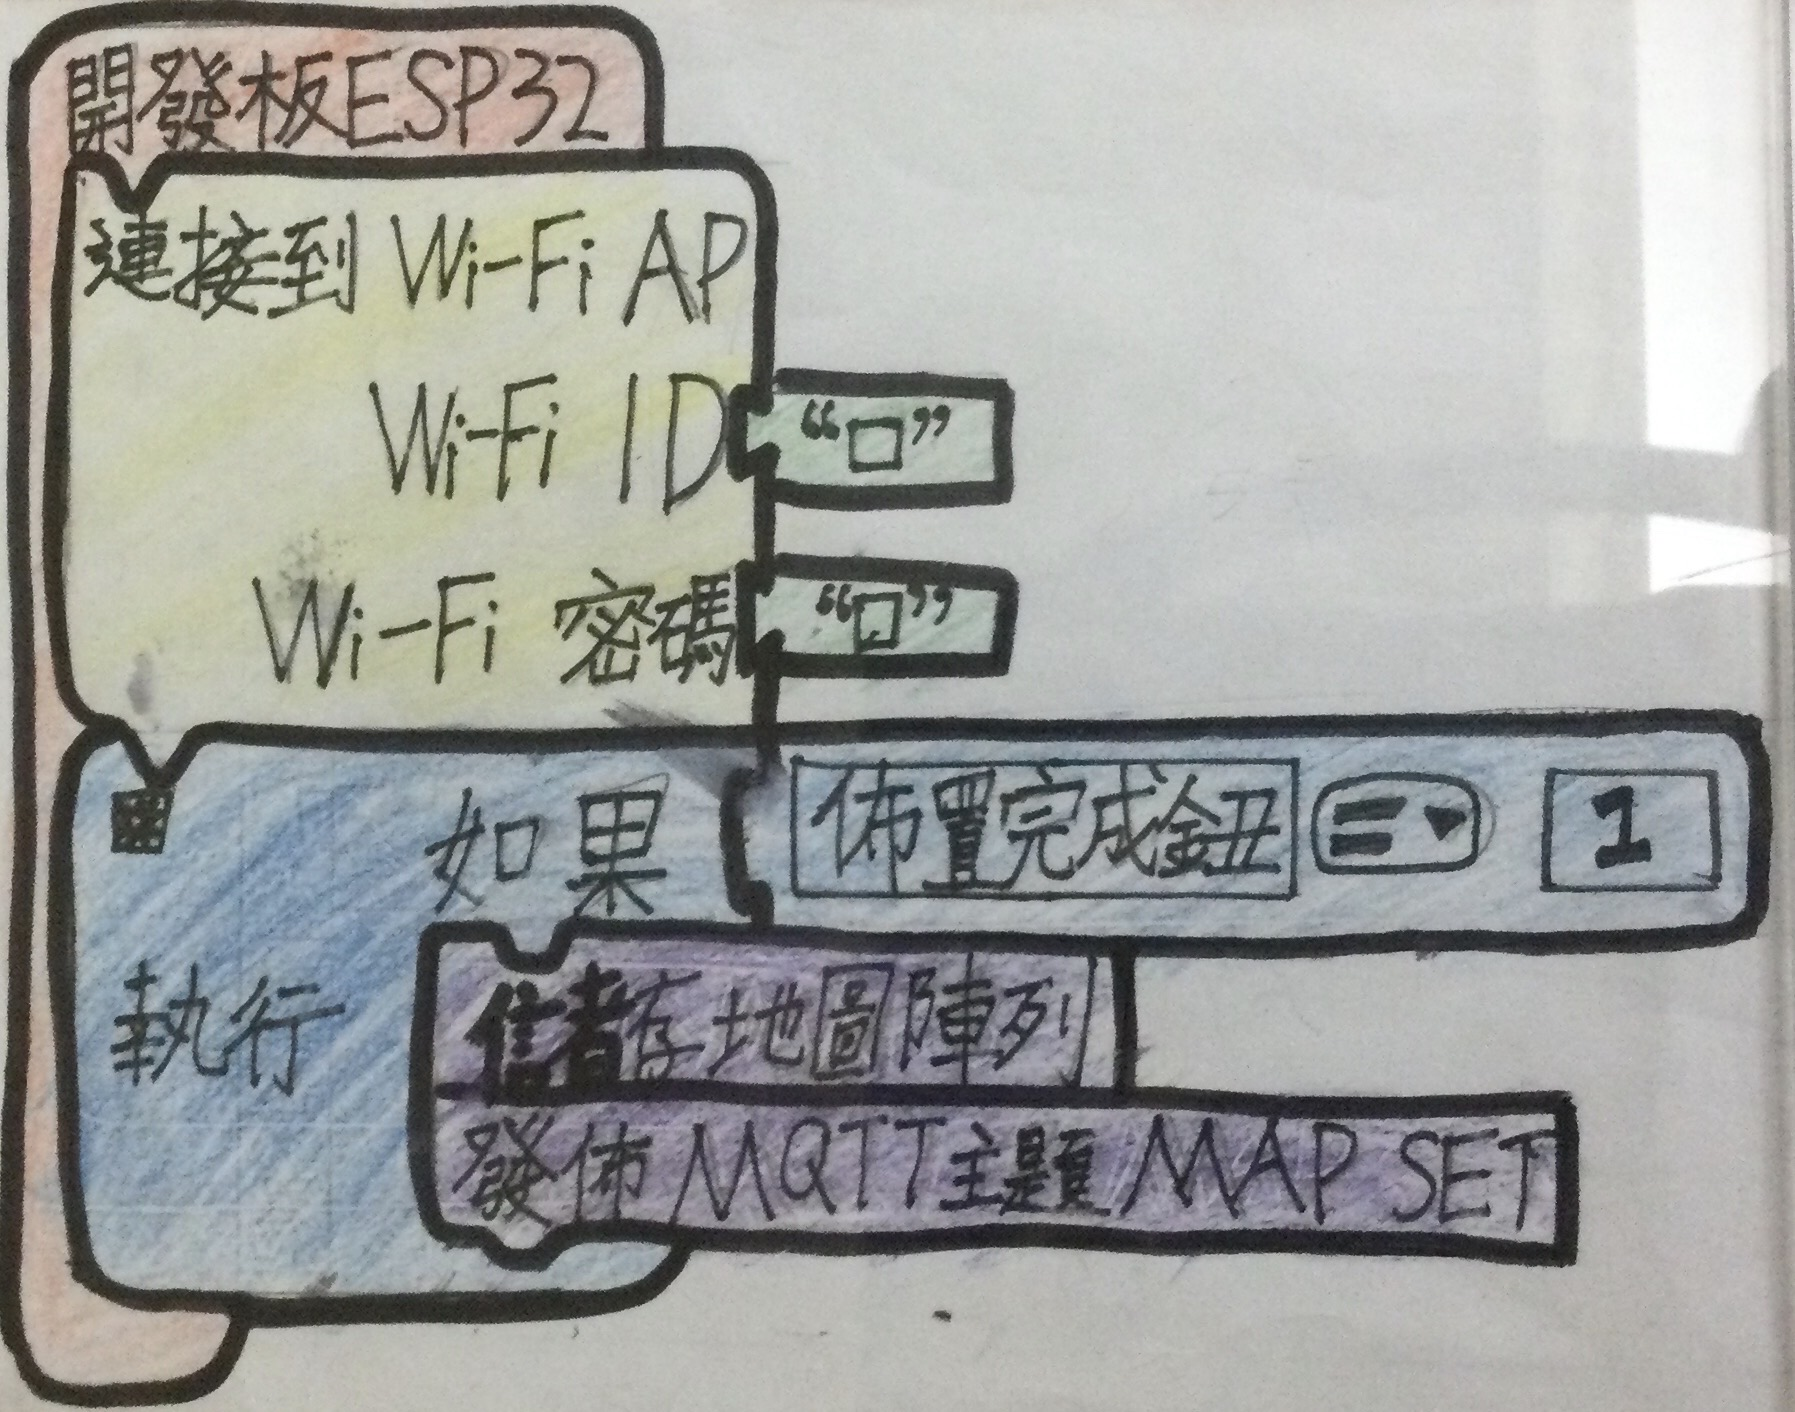 開發板ESP32
連接到 Wi-Fi AP
Wi-Fi ID “□”
Wi-Fi 密碼 “□”
如果 佈置完成鈕 =▾ 1
執行 存地圖陣列
發佈 MQTT主題 MAP SET